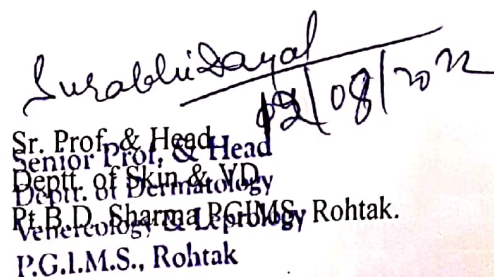 Surabhi Dayal
02/08/2022
Sr. Prof. & Head
Senior Prof. & Head
Deptt. of Skin & VD
Deptt. of Dermatology
Pt.B.D. Sharma PGIMS, Rohtak.
Venereology & Leprology
P.G.I.M.S., Rohtak